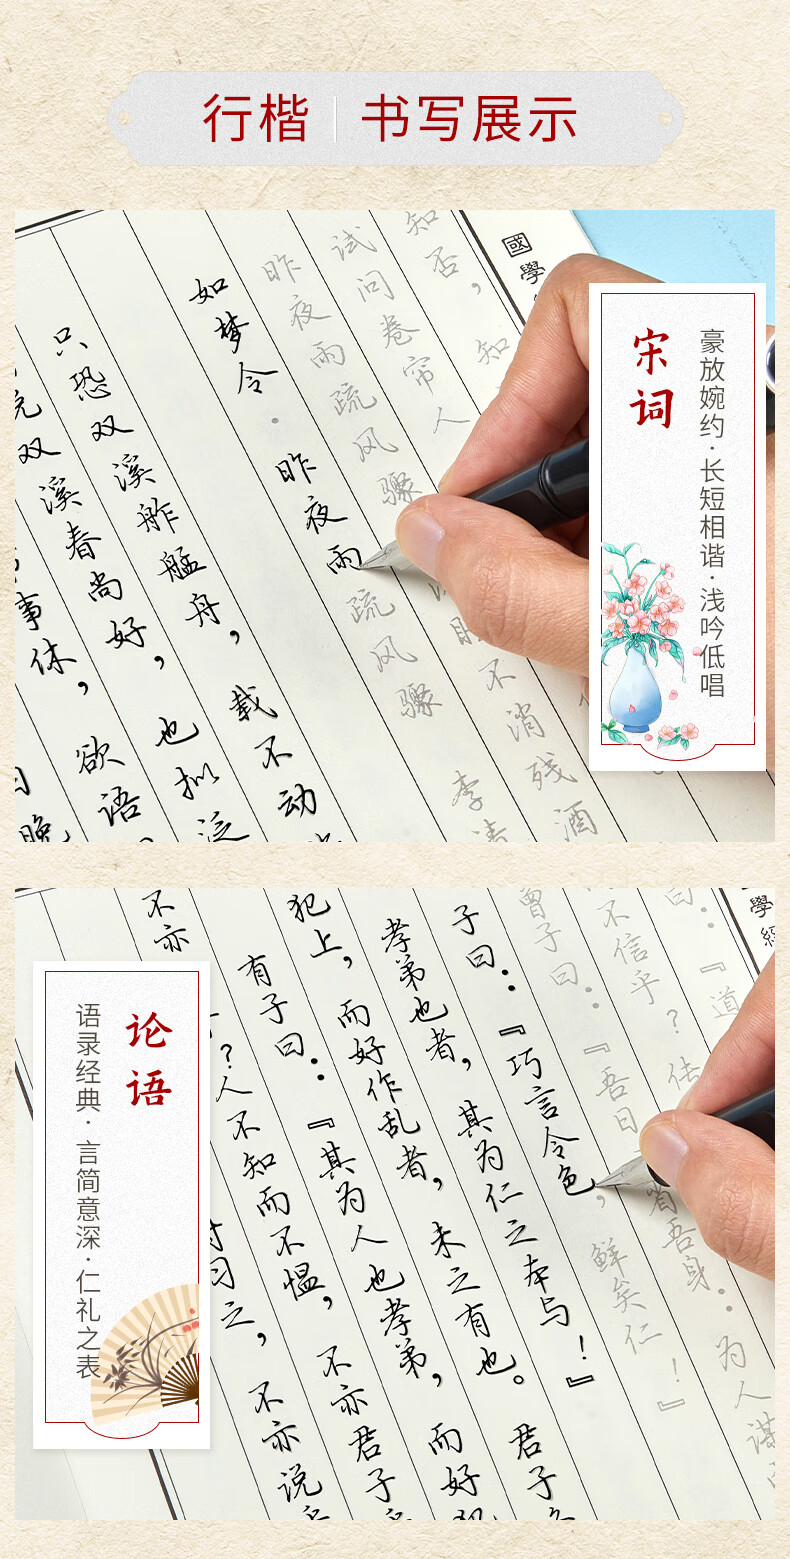 行楷 书写展示
國學
知否，知
试问卷帘人
昨夜雨疏风骤
睡不消残酒
如梦令·昨夜雨疏风骤 李清
只恐双溪舴艋舟，载不动
双溪春尚好，也拟泛
事休，欲语
晚
宋词
豪放婉约·长短相谐·浅吟低唱
學經
曰：『道
不信乎？传
曾子曰：『吾日 省吾身。为人谋
子曰：『巧言令色，鲜矣仁！』
孝弟也者，其为仁之本与！』
犯上，而好作乱者，未之有也。君子
有子曰：『其为人也孝弟，而好犯
不亦
？人不知而不愠，不亦君子
时习之，不亦说
论语
语录经典·言简意深·仁礼之表